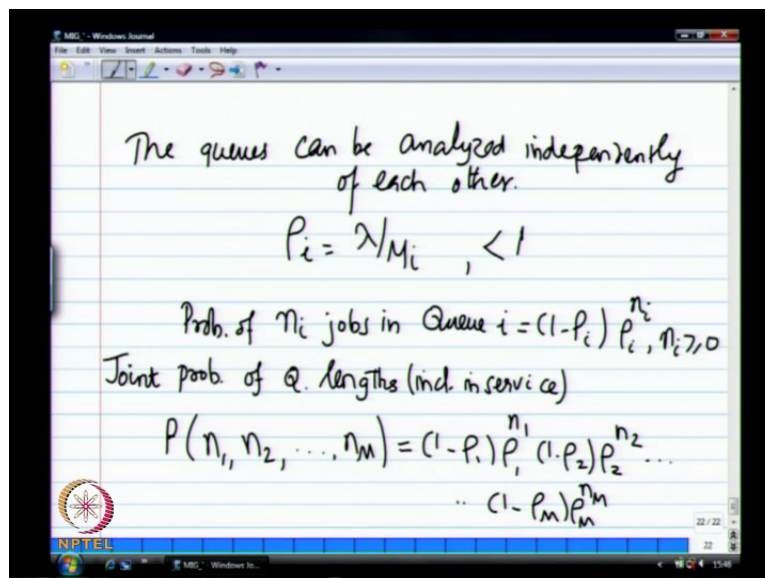 MIG_* - Windows Journal
File Edit View Insert Actions Tools Help
The queues can be analyzed independently
of each other.
ρi = λ/μi , < 1
Prob. of ni jobs in Queue i = (1-ρi) ρi^ni , ni ≥ 0
Joint prob. of Q. lengths (incl. in service)
P(n1, n2, ..., nM) = (1-ρ1)ρ1^n1 (1-ρ2)ρ2^n2 ...
.. (1-ρM)ρM^nM
NPTEL
22 / 22
22
MIG_* - Windows Jo...
15:46